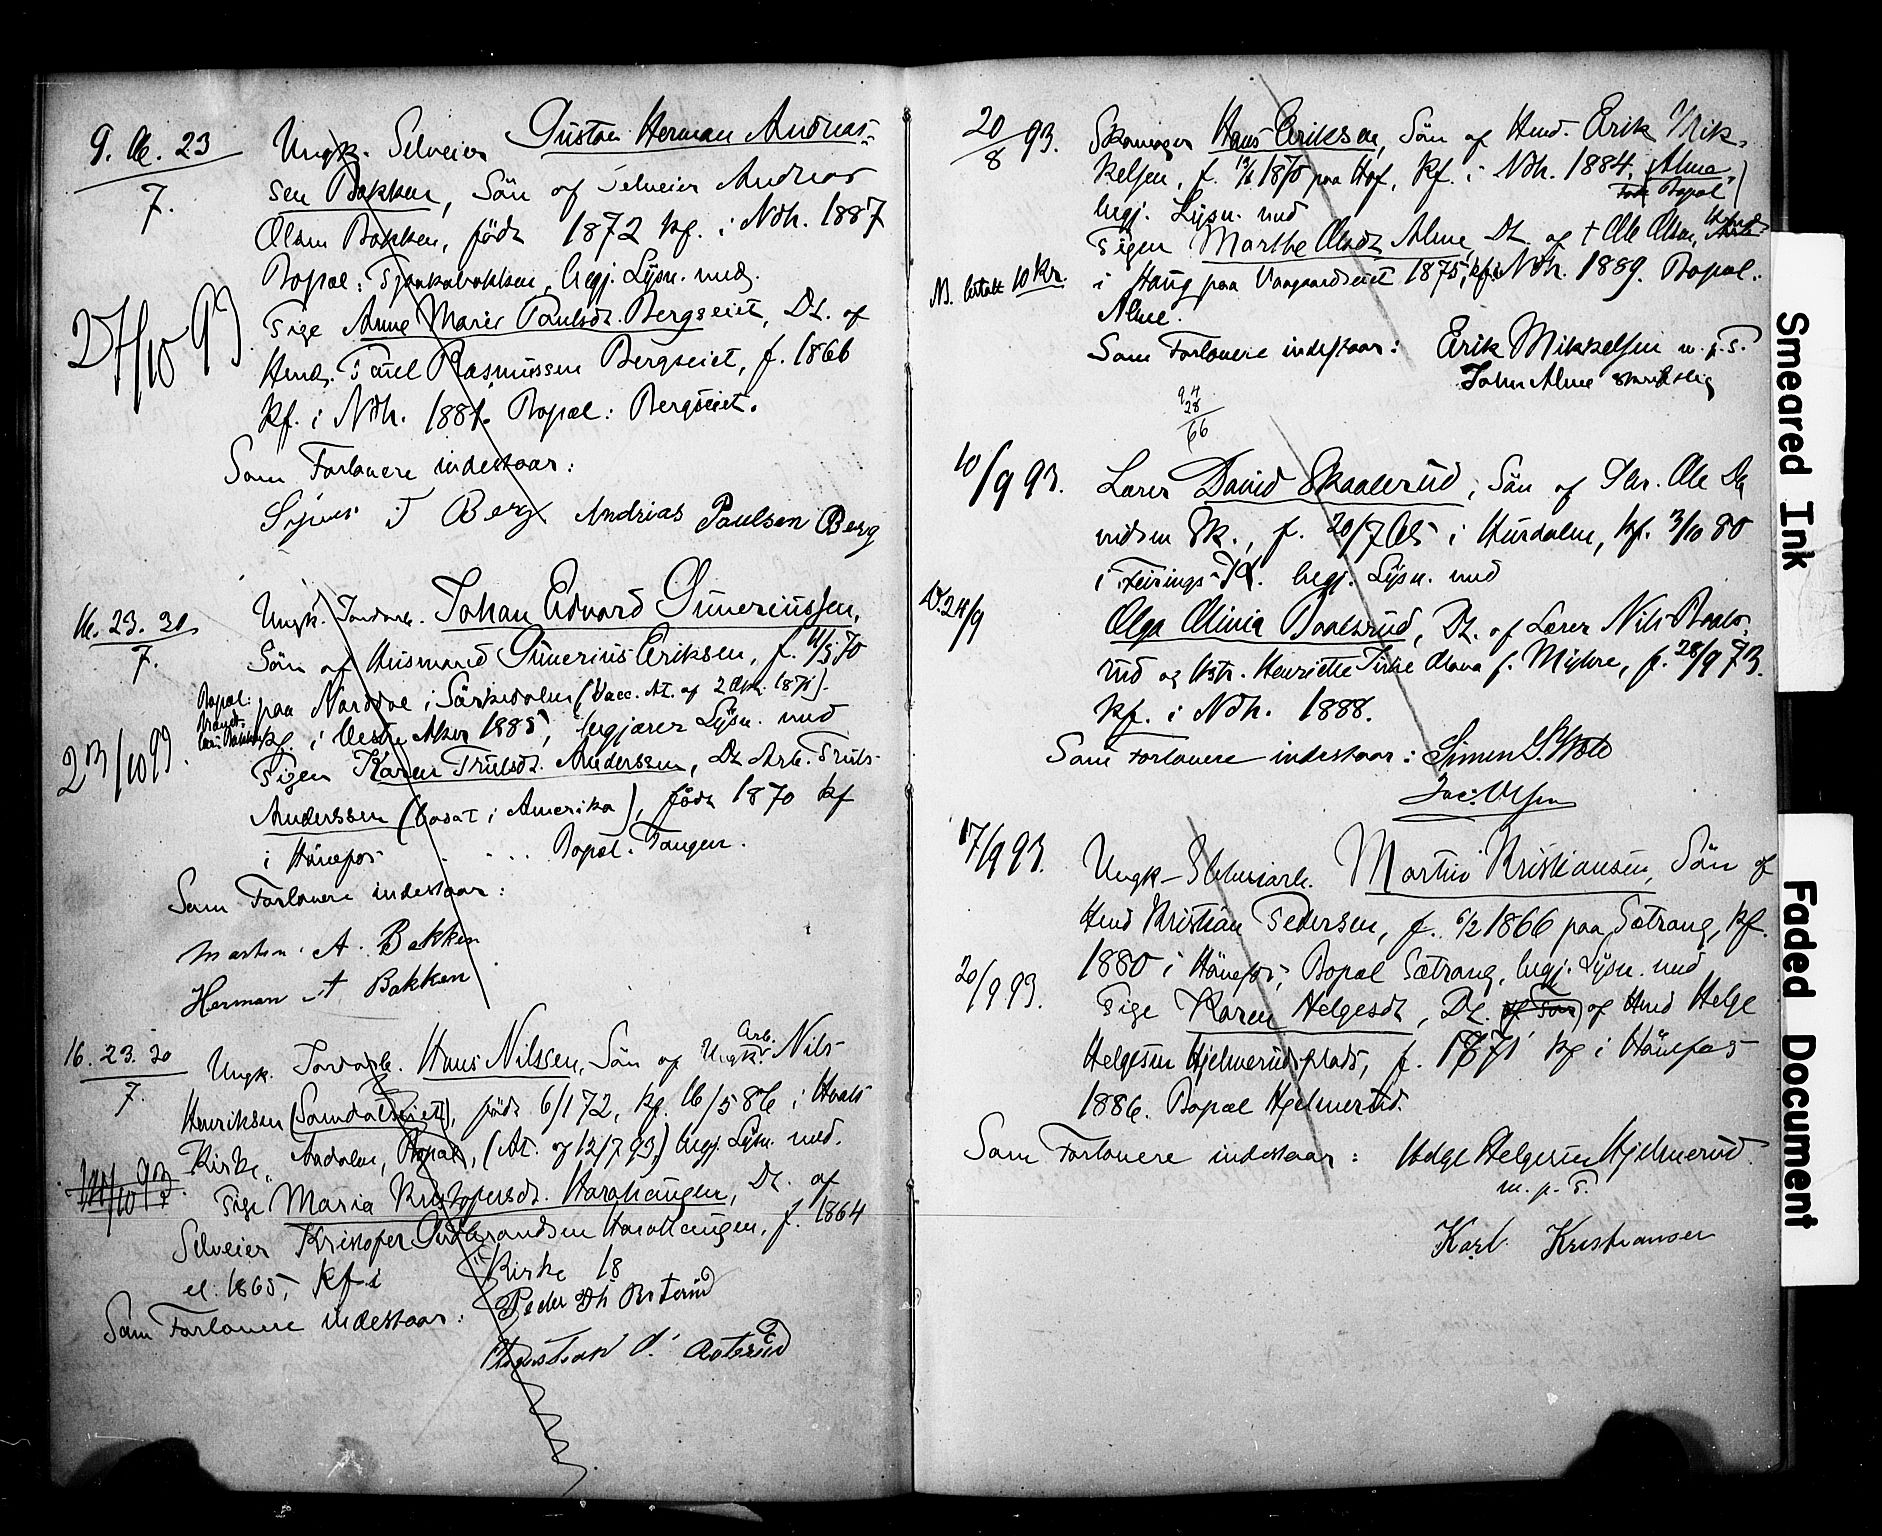 9. 16. 23
7.
Ungk. Selveier Gustav Herman Andreas-
sen Bakken, Sön af Selveier Andreas
Olsen Bakken, född 1872 kf. i Ndh. 1887
Bopæl: begj. Lysn. med.
27/10 93
Pige Anne Marie Paulsdt. Bergseiet, Dt. af
Hmd. Paul Rasmussen Bergseiet, f. 1866
kf. i Ndh. 1881. Bopæl: Bergseiet.
Som Forlovere indestaar:
Berg Andrias Paulsen Berg
16. 23. 30
7.
Ungk. Jordarb. Johan Edvard Guneriussen,
Sön af Husmand Gunerius Eriksen, f. 4/5 70
Bopæl:
paa i Sörkedalen (Vacc. At. af 1871).
kf. i Vestre Aker 1885, begjærer Lysn. med
23/10 93
Pigen Karen Trulsdt. Anderssen, Dt. Arb. Truls
Anderssen (bosat i Amerika), född 1870 kf
i Hönefos Bopæl. Tangen.
Som Forlovere indestaar:
Martin A. Bakken
Herman A Bakken
16. 23. 30
7.
Ungk. Jordarb. Hans Nilsen, Sön af Ungk. Arb. Nils
Henriksen (Samdalseiet), född 6/1 72, kf. 16/5 86 i Hvals
Kirke, Aadalen, Bopæl, (At. af 12/7 93) begj. Lysn. med.
Pige Maria Kristofersdt. Haraldhaugen, Dt. af
Selveier Kristofer Gudbrandsen Haraldhaugen, f. 1864
el. 1865, kf. i Kirke 18
Som Forlovere indestaar: Peder
20/8 93.
Hans Eriksen, Sön af Hmd. Erik Mik-
kelsen, f. 1870 paa Hof, kf. i Ndh. 1884, Alme
Bopæl
begj. Lysn. med
Pigen Marthe Olsdt. Alme, Dt. af † Ole Olsen,
N. betalt 10 Kr.
i Haug paa Vaagaardseiet 1875, kf. i Ndh. 1889. Bopæl:
Alme.
Som Forlovere indestaar: Erik Mikkelsen m. p. P.
John Alme
94
28
66
10/9 93.
Lærer David Skaalerud, Sön af Ole Da
vidsen Sk., f. 20/7 65 i Hurdalen, kf. 3/10 80
i Feirings K. begj. Lysn. med
V. 24/9
Olga Olivia Baalsrud, Dt. af Lærer Nils Baals
rud og Hstr. Henriette Olava f. Myhre, f. 28/9 73.
kf. i Ndh. 1888.
Som Forlovere indestaar: Simen
Jac. Olsen
17/9 93.
Ungk. Martin Kristiansen, Sön af
Hmd Kristian Pedersen, f. 6/2 1866 paa Sætrang, kf.
1880 i Hönefos, Bopæl Sætrang, begj. Lysn. med
20/9 93.
Pige Karen Helgesdt, Dt. af Hmd Helge
Helgesen Hjelmerudsplads, f. 1871 kf i Hönefos
1886. Bopæl Hjelmerud.
Som Forlovere indestaar: Helge Helgesen Hjelmerud
m. p. P.
Karl Kristiansen
Smeared Ink
Faded Document